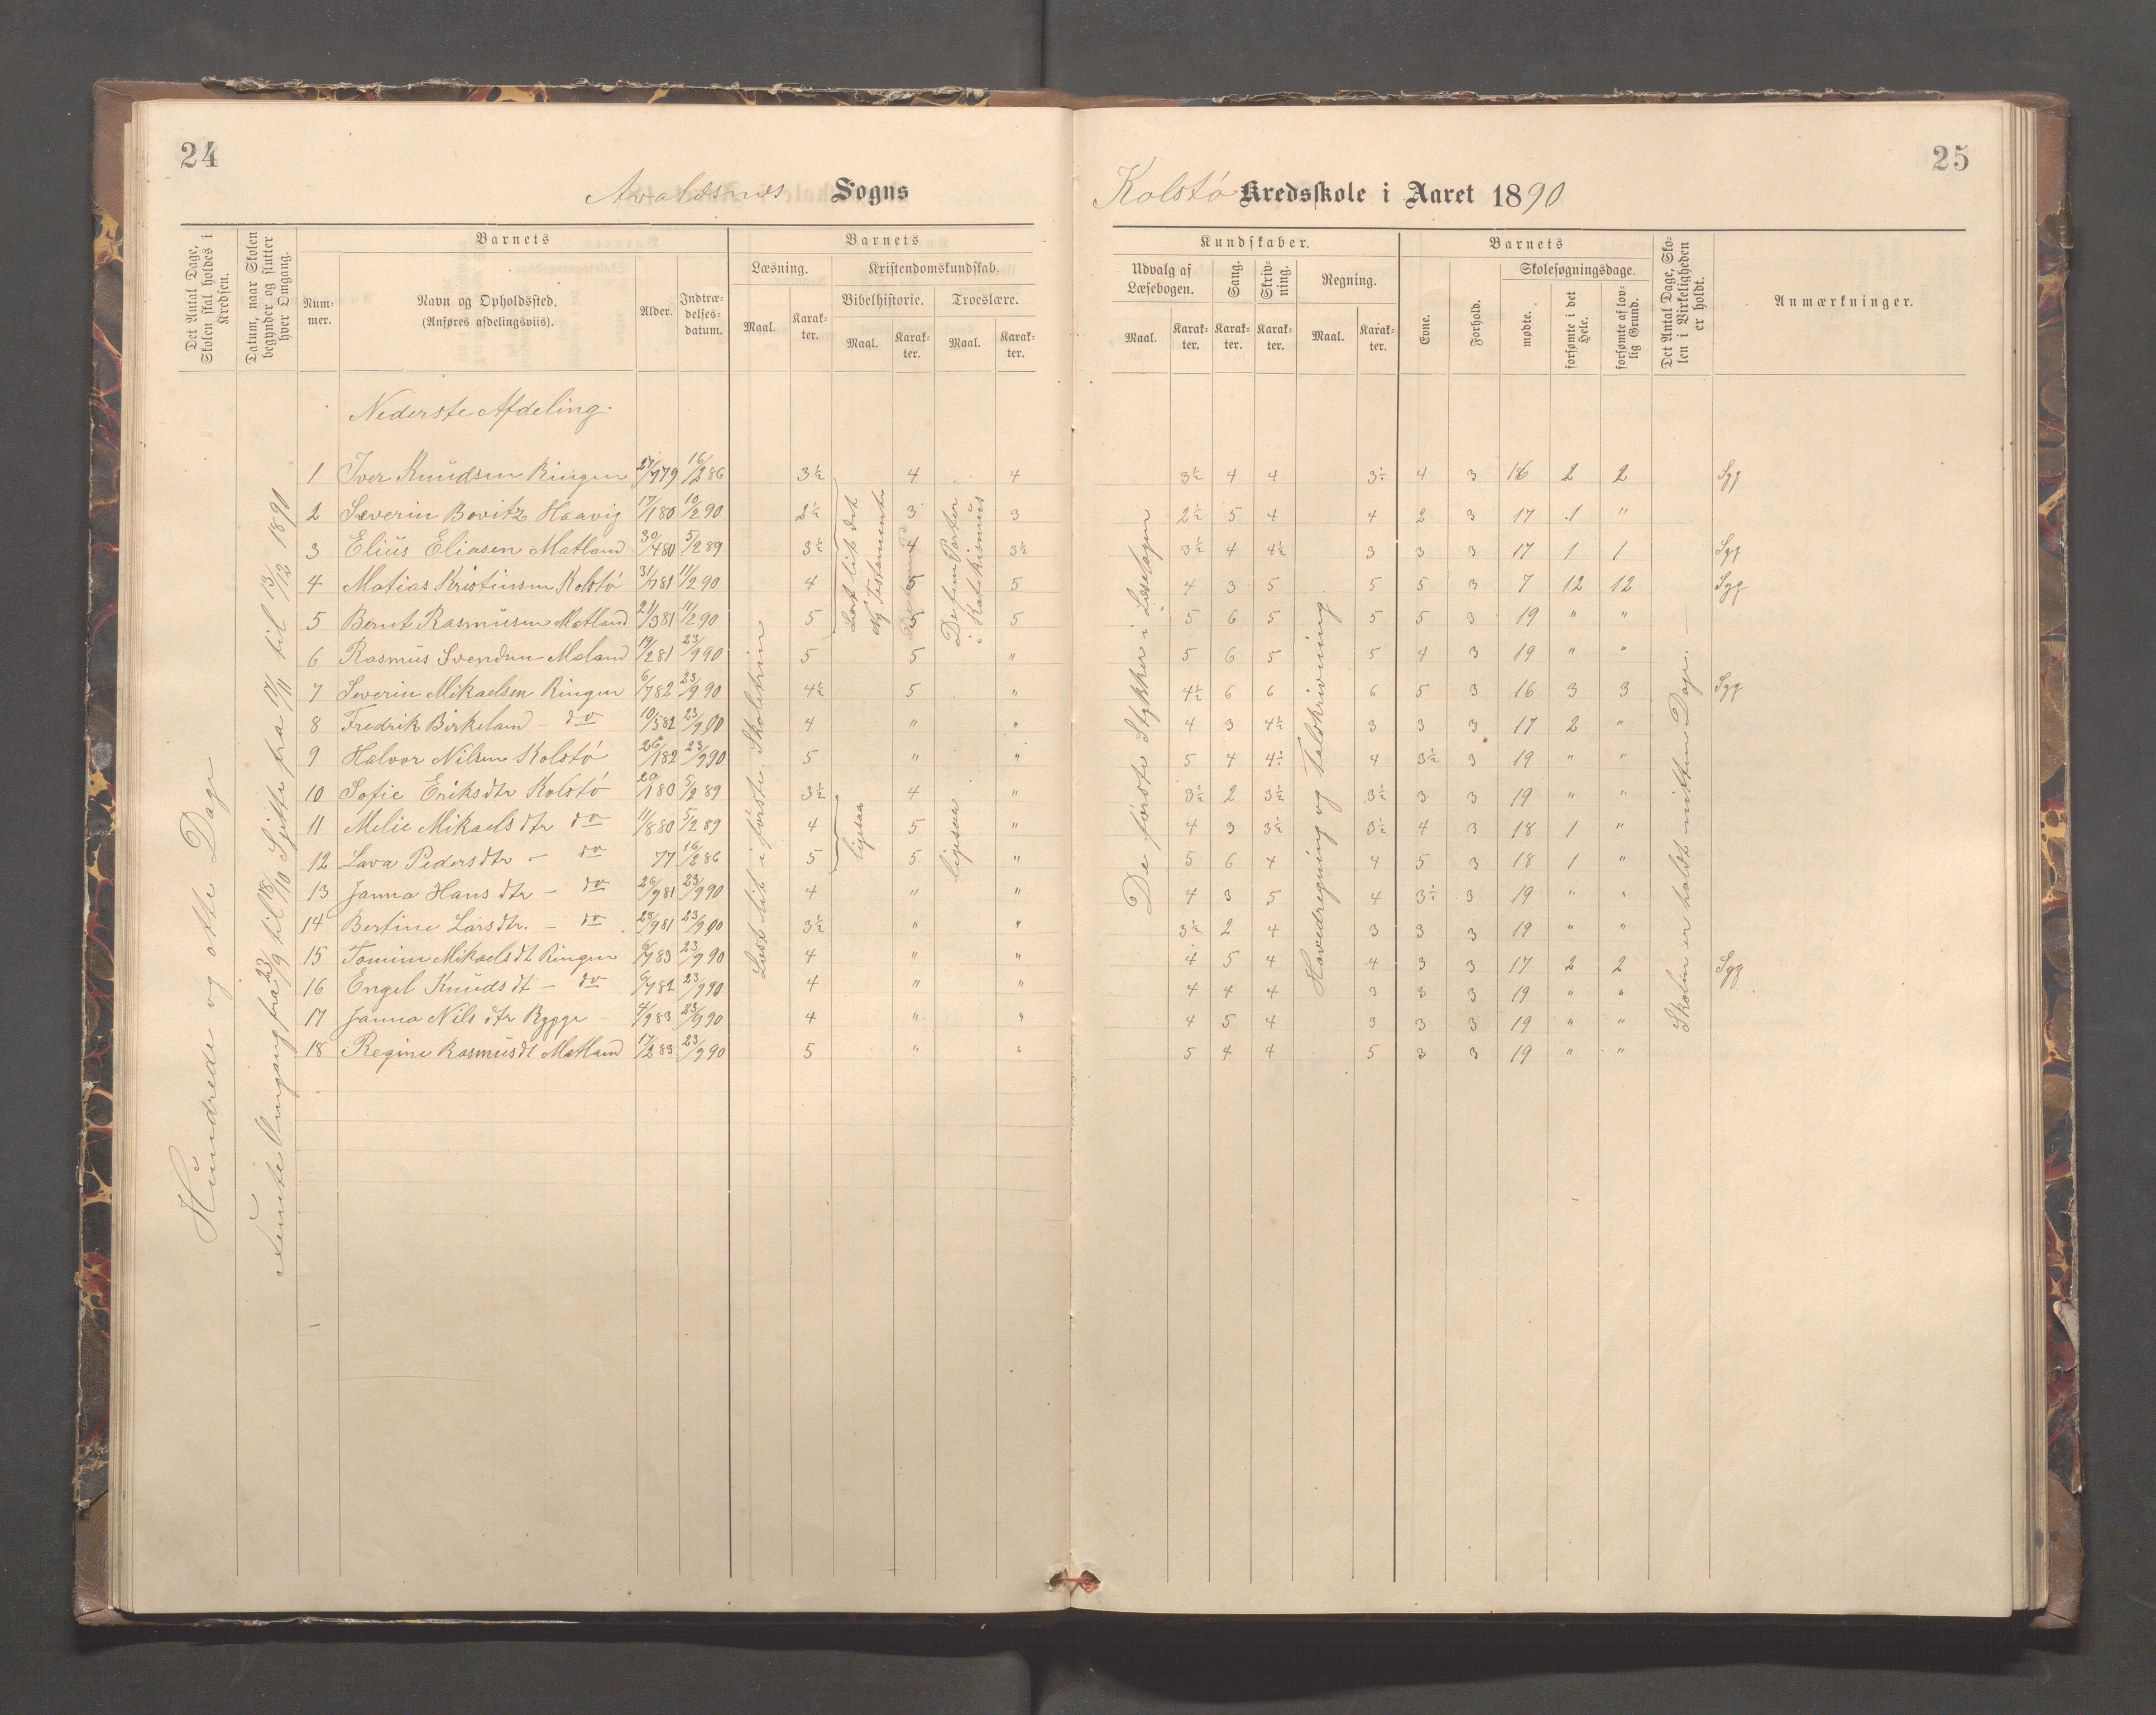 24
25
Avaldsnes Sogns
Kolstø Kredsskole i Aaret 1890
Det Antal Dage, Skolen skal holdes i Kredsen.
Datum, naar Skolen begynder og slutter hver Omgang.
Barnets
Barnets
Kundskaber.
Barnets
Det Antal Dage, Skolen i Virkeligheden er holdt.
Anmærkninger.
Nummer.
Navn og Opholdssted.
(Anføres afdelingsviis).
Alder.
Indtrædelsesdatum.
Læsning.
Kristendomskundskab.
Bibelhistorie.
Troeslære.
Maal.
Karakter.
Maal.
Karakter.
Maal.
Karakter.
Udvalg af Læsebogen.
Sang.
Skrivning.
Regning.
Maal.
Karakter.
Karakter.
Karakter.
Maal.
Karakter.
Evne.
Forhold.
Skolesøgningsdage.
mødte.
forsømte i det Hele.
forsømte af lovlig Grund.
Hundrede og otte Dage
Femte Omgang fra 23/9 til 18/10 Sjette fra 17/11 til 13/12 1890
Nederste Afdeling.
Læst lit i første Skoletrin
Læst lit det Ny Testamente
De fem Parter i Katekismus
ligesaa
ligesaa
De første Stykker i Læsebogen
Hovedregning og Talskrivning
Skolen er holdt nitten Dage.
1 Iver Knudsen Ringen 27/7 79 16/2 86 3½ 4 4 3½ 4 4 3½ 4 3 16 2 2 Syg
2 Severin Bovitz Haavig 17/1 80 10/2 90 2½ 3 3 2½ 5 4 4 2 3 17 1 "
3 Elius Eliasen Matland 30/4 80 5/2 89 3½ 4 3½ 3½ 4 4½ 3 3 3 17 1 1 Syg
4 Matias Kristinsen Kolstø 31/7 81 11/2 90 4 5 5 4 3 5 5 5 3 7 12 12 Syg
5 Bernt Rasmusen Matland 21/3 81 11/2 90 5 5 5 5 6 5 5 5 3 19 " "
6 Rasmus Svendsen Maland 19/2 81 23/9 90 5 5 " 5 6 5 5 4 3 19 " "
7 Severin Mikaelsen Ringen 6/7 82 23/9 90 4½ 5 " 4½ 6 6 6 5 3 16 3 3 Syg
8 Fredrik Birkeland - do 10/5 82 23/9 90 4 " " 4 3 4½ 3 3 3 17 2 "
9 Halvor Nilsen Kolstø 26/1 82 23/9 90 5 " " 5 4 4½ 4 3½ 3 19 " "
10 Sofie Eriksdtr Kolstø 20/1 80 5/2 89 3½ 4 " 3½ 2 3½ 3½ 3 3 19 " "
11 Melie Mikaelsdtr do 11/8 80 5/2 89 4 5 " 4 3 3½ 3½ 4 3 18 1 "
12 Lava Pedersdtr - do 77 16/2 86 5 5 " 5 6 4 4 5 3 18 1 "
13 Janna Hansdtr - do 26/9 81 23/9 90 4 " " 4 3 5 4 3½ 3 19 " "
14 Bertine Larsdtr. - do 28/9 81 23/9 90 3½ " " 3½ 2 4 3 3 3 19 " "
15 Tomine Mikaelsdt Ringen 6/7 83 23/9 90 4 " " 4 5 4 4 3 3 17 2 2 Syg
16 Engel Knudsdt - do 6/7 82 23/9 90 4 " " 4 4 4 3 3 3 19 " "
17 Janna Nilsdtr Rygge 4/9 83 23/9 90 4 " " 4 5 4 3 3 3 19 " "
18 Regine Rasmusdt Matland 17/2 83 23/9 90 5 " " 5 4 4 5 3 3 19 " "